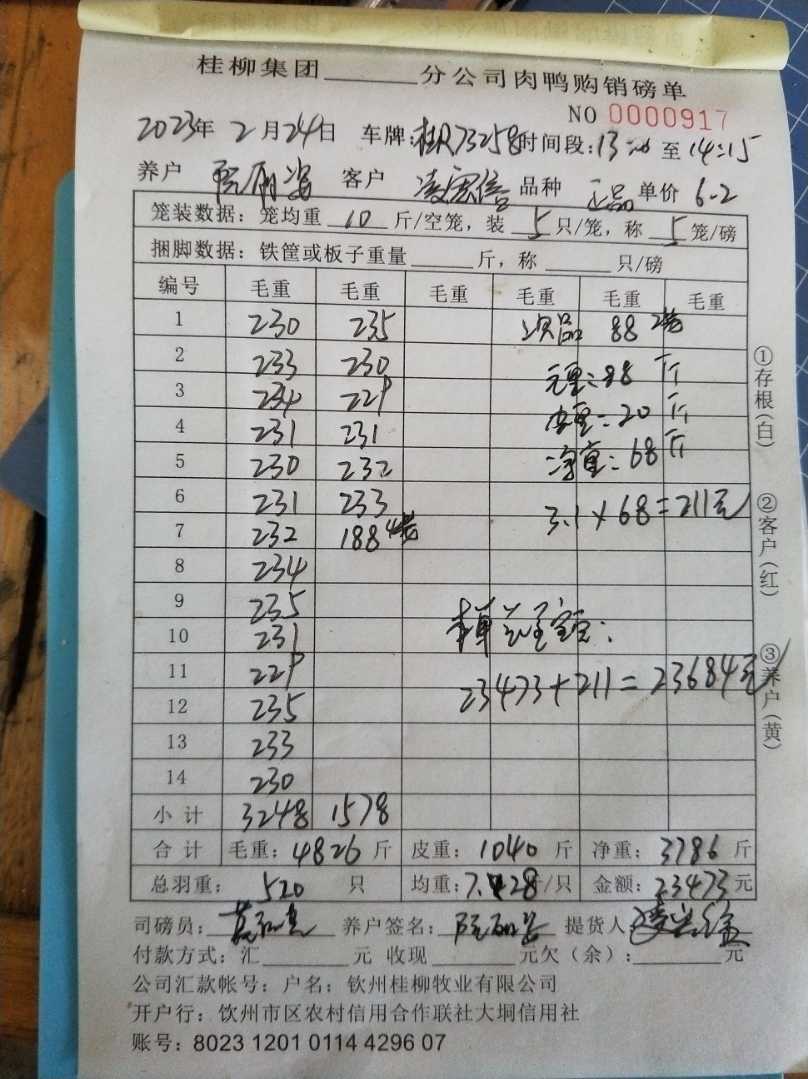 桂柳集团______分公司肉鸭购销磅单
NO 0000917
2023年 2月24日 车牌:桂R73258 时间段:13:00 至 14:15
养户 客户 品种 正品 单价 6.2
笼装数据: 笼均重 10 斤/空笼, 装 5 只/笼, 称 5 笼/磅
捆脚数据: 铁筐或板子重量______斤, 称______只/磅
编号 毛重 毛重 毛重 毛重 毛重 毛重
1 230 235 次品 88 2笼
2 233 230 毛重:88斤
3 234 229 皮重:20斤
4 231 231 净重:68斤
5 230 232
6 231 233 3.1×68=211元
7 232 188 4笼
8 234
9 235
10 231 本单总金额:
11 229 23473+211=23684元
12 235
13 233
14 230
小计 3248 1578
合计 毛重: 4826 斤 皮重: 1040 斤 净重: 3786 斤
总羽重: 520 只 均重: 7.28斤/只 金额: 23473元
司磅员: 养户签名: 提货人
付款方式: 汇______元 收现______元欠(余):______元
公司汇款帐号: 户名: 钦州桂柳牧业有限公司
开户行: 饮州市区农村信用合作联社大垌信用社
账号: 8023 1201 0114 4296 07
①存根(白)
②客户(红)
③养户(黄)